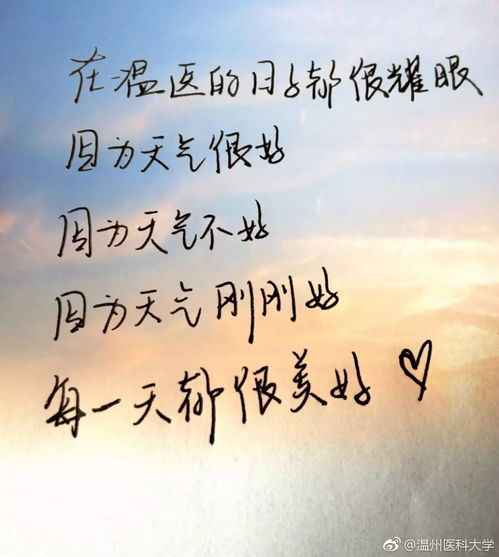 在温医的日子都很耀眼
因为天气很好
因为天气不好
因为天气刚刚好
每一天都很美好♡
@温州医科大学